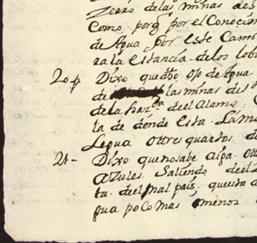 Zerro de las minas de
Como, porq̃ por el Conocim
de Agua por este Cami
ra la estancia de los lob
20 p Dixo que dho ojo de agua
de las minas de
de la haz.da del Alamo
la de donde esta La mi
Legua o tres quartos de
21 - Dixo que no sabe aiga ot
azules. Saliendo del
ta. del mal pais, questa d
gua poco mas o menor